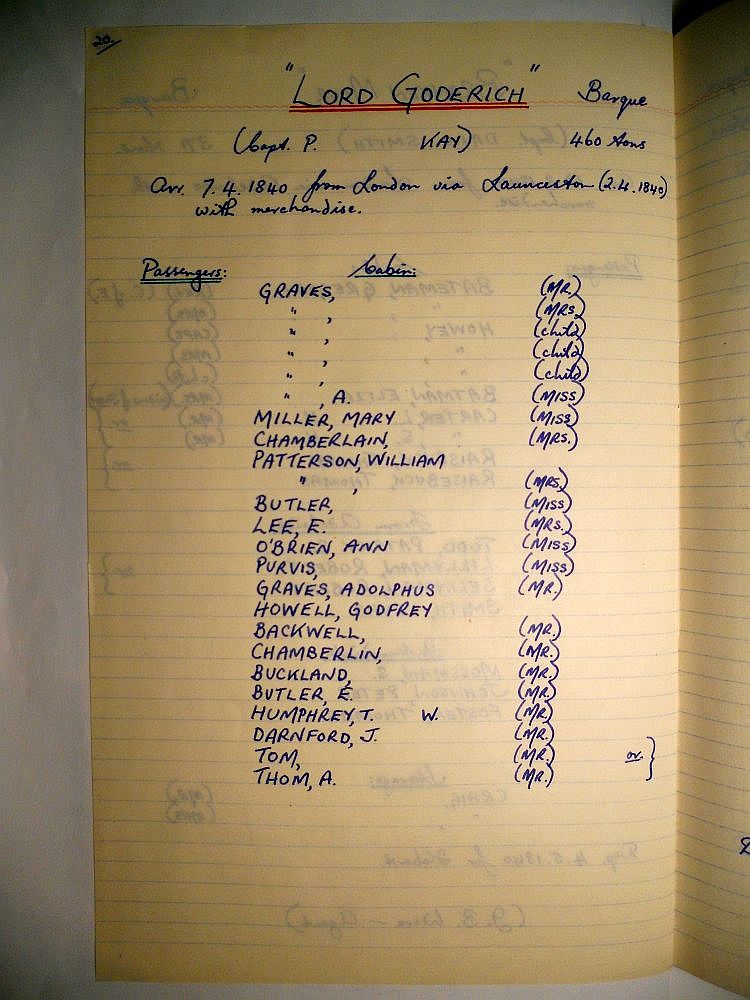 20.
"LORD GODERICH" Barque
(Capt. P. KAY) 460 tons
Arr. 7.4.1840 from London via Launceston (2.4.1840)
with merchandise.
Passengers: Cabin:
GRAVES, (MR.)
" , (MRS.)
" , (child)
" , (child)
" , (child)
" , A. (MISS)
MILLER, MARY (MISS)
CHAMBERLAIN, (MRS.)
PATTERSON, WILLIAM
" , (MRS.)
BUTLER, (MISS)
LEE, E. (MRS.)
O'BRIEN, ANN (MISS)
PURVIS, (MISS)
GRAVES, ADOLPHUS (MR.)
HOWELL, GODFREY
BACKWELL, (MR.)
CHAMBERLIN, (MR.)
BUCKLAND, (MR.)
BUTLER, E. (MR.)
HUMPHREY, T. W. (MR.)
DARNFORD, J. (MR.)
TOM, (MR.) or }
THOM, A. (MR.)